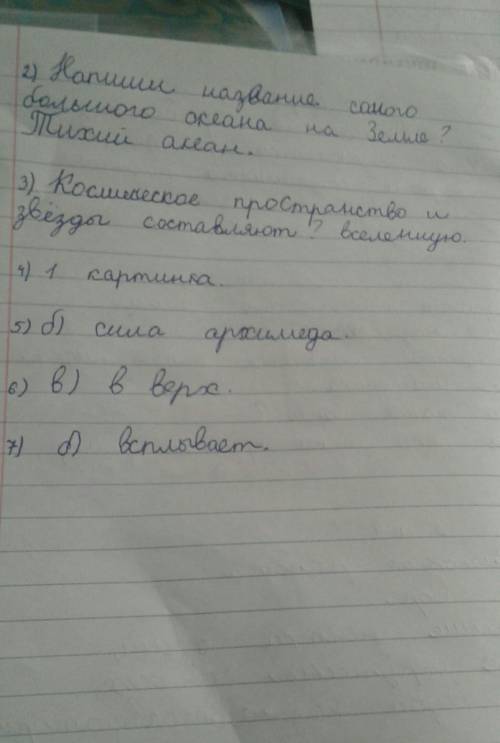 2) Напиши название самого
большого океана на Земле?
Тихий акеан.
3) Космическое пространство и
звёзды составляют? вселенную.
4) 1 картинка.
5) б) сила архимеда.
6) в) в верх.
7) б) всплывает.